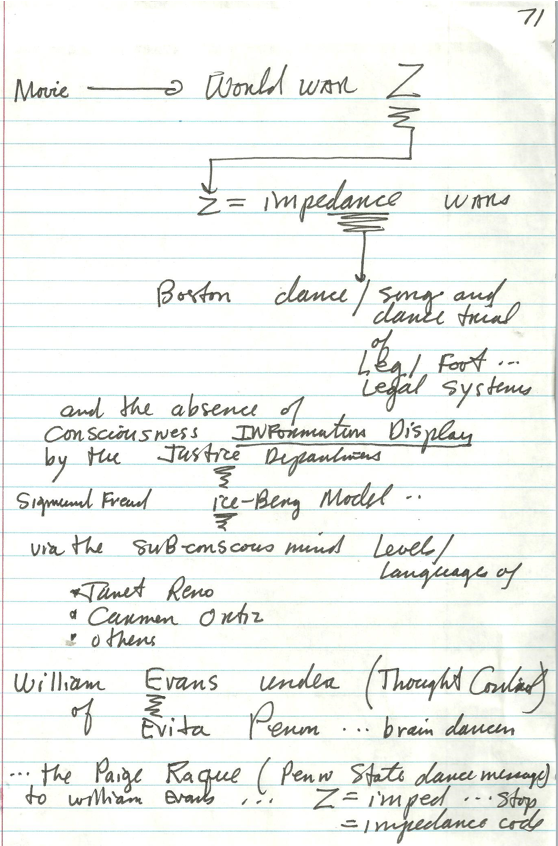 71
Movie → World WAR Z
Z = impedance WARs
Boston dance / song and
dance trial
of
Leg / Foot ...
Legal Systems
and the absence of
Consciousness INFormation Display
by the Justice Department
Sigmund Freud ice-Berg Model ..
via the sub-conscous mind Levels /
Languages of
• Janet Reno
• Carmen Ortiz
• others
William Evans under (Thought Control)
of Evita Peron ... brain dancer
... the Paige Raque (Penn State dance message)
to William Evans ... Z = imped ... stop
= impedance code